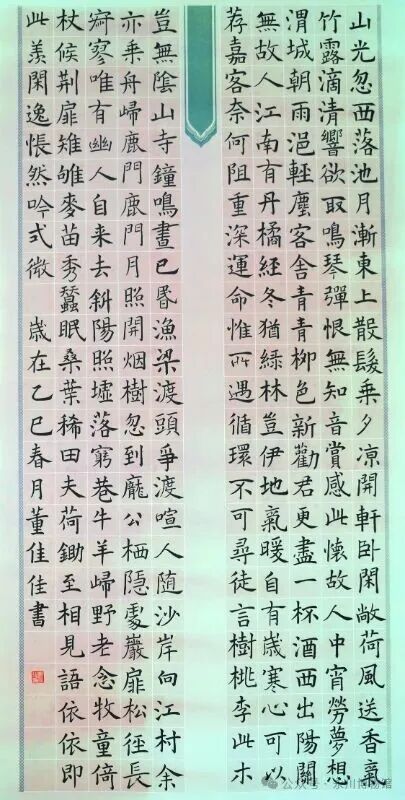 山光忽西落池月漸東上散髮乘夕涼開軒卧閑敞荷風送香氣
竹露滴清響欲取鳴琴彈恨無知音賞感此懷故人中宵勞夢想
渭城朝雨浥輕塵客舍青青柳色新勸君更盡一杯酒西出陽關
無故人江南有丹橘經冬猶綠林豈伊地氣暖自有歲寒心可以
荐嘉客奈何阻重深運命惟所遇循環不可尋徒言樹桃李此木
豈無陰山寺鐘鳴晝已昏漁梁渡頭爭渡喧人随沙岸向江村余
亦乘舟歸鹿門鹿門月照開烟樹忽到龐公栖隱處巖扉松徑長
寂寥唯有幽人自来去斜陽照墟落窮巷牛羊歸野老念牧童倚
杖候荆扉雉雊麥苗秀蠶眠桑葉稀田夫荷鋤至相見語依依即
此羨閑逸悵然吟式微 歲在乙巳春月董佳佳書
公众号 · 博物馆